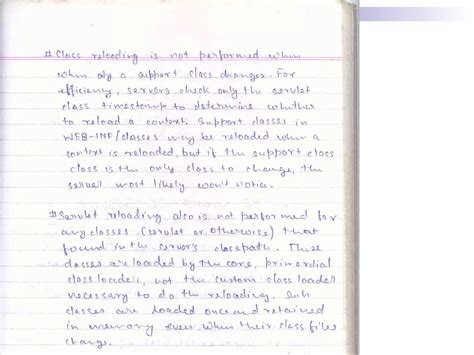 # Class reloading is not performed when
when only a support class changes. For
efficiency, servers check only the servlet
class timestamp to determine whether
to reload a context. Support classes in
WEB-INF/classes may be reloaded when a
context is reloaded, but if the support class
class is the only class to change, the
server most likely won't notice.
# Servlet reloading also is not performed for
any classes (servlet or otherwise) that
found in the server's classpath. These
classes are loaded by the core, primordial
class loader, not the custom class loader
necessary to do the reloading. Such
classes are loaded once and retained
in memory even when their class files
change.